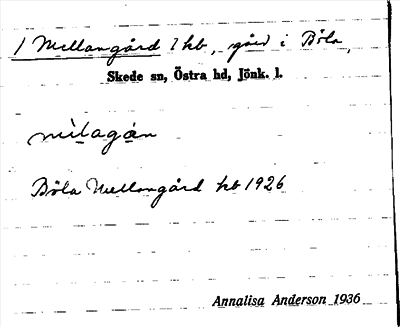 1 Mellangård 2 kb, gård i Böla,
Skede sn, Östra hd, Jönk. l.
mìlagán
Böla Mellangård kb 1926
Annalisa Anderson 1936